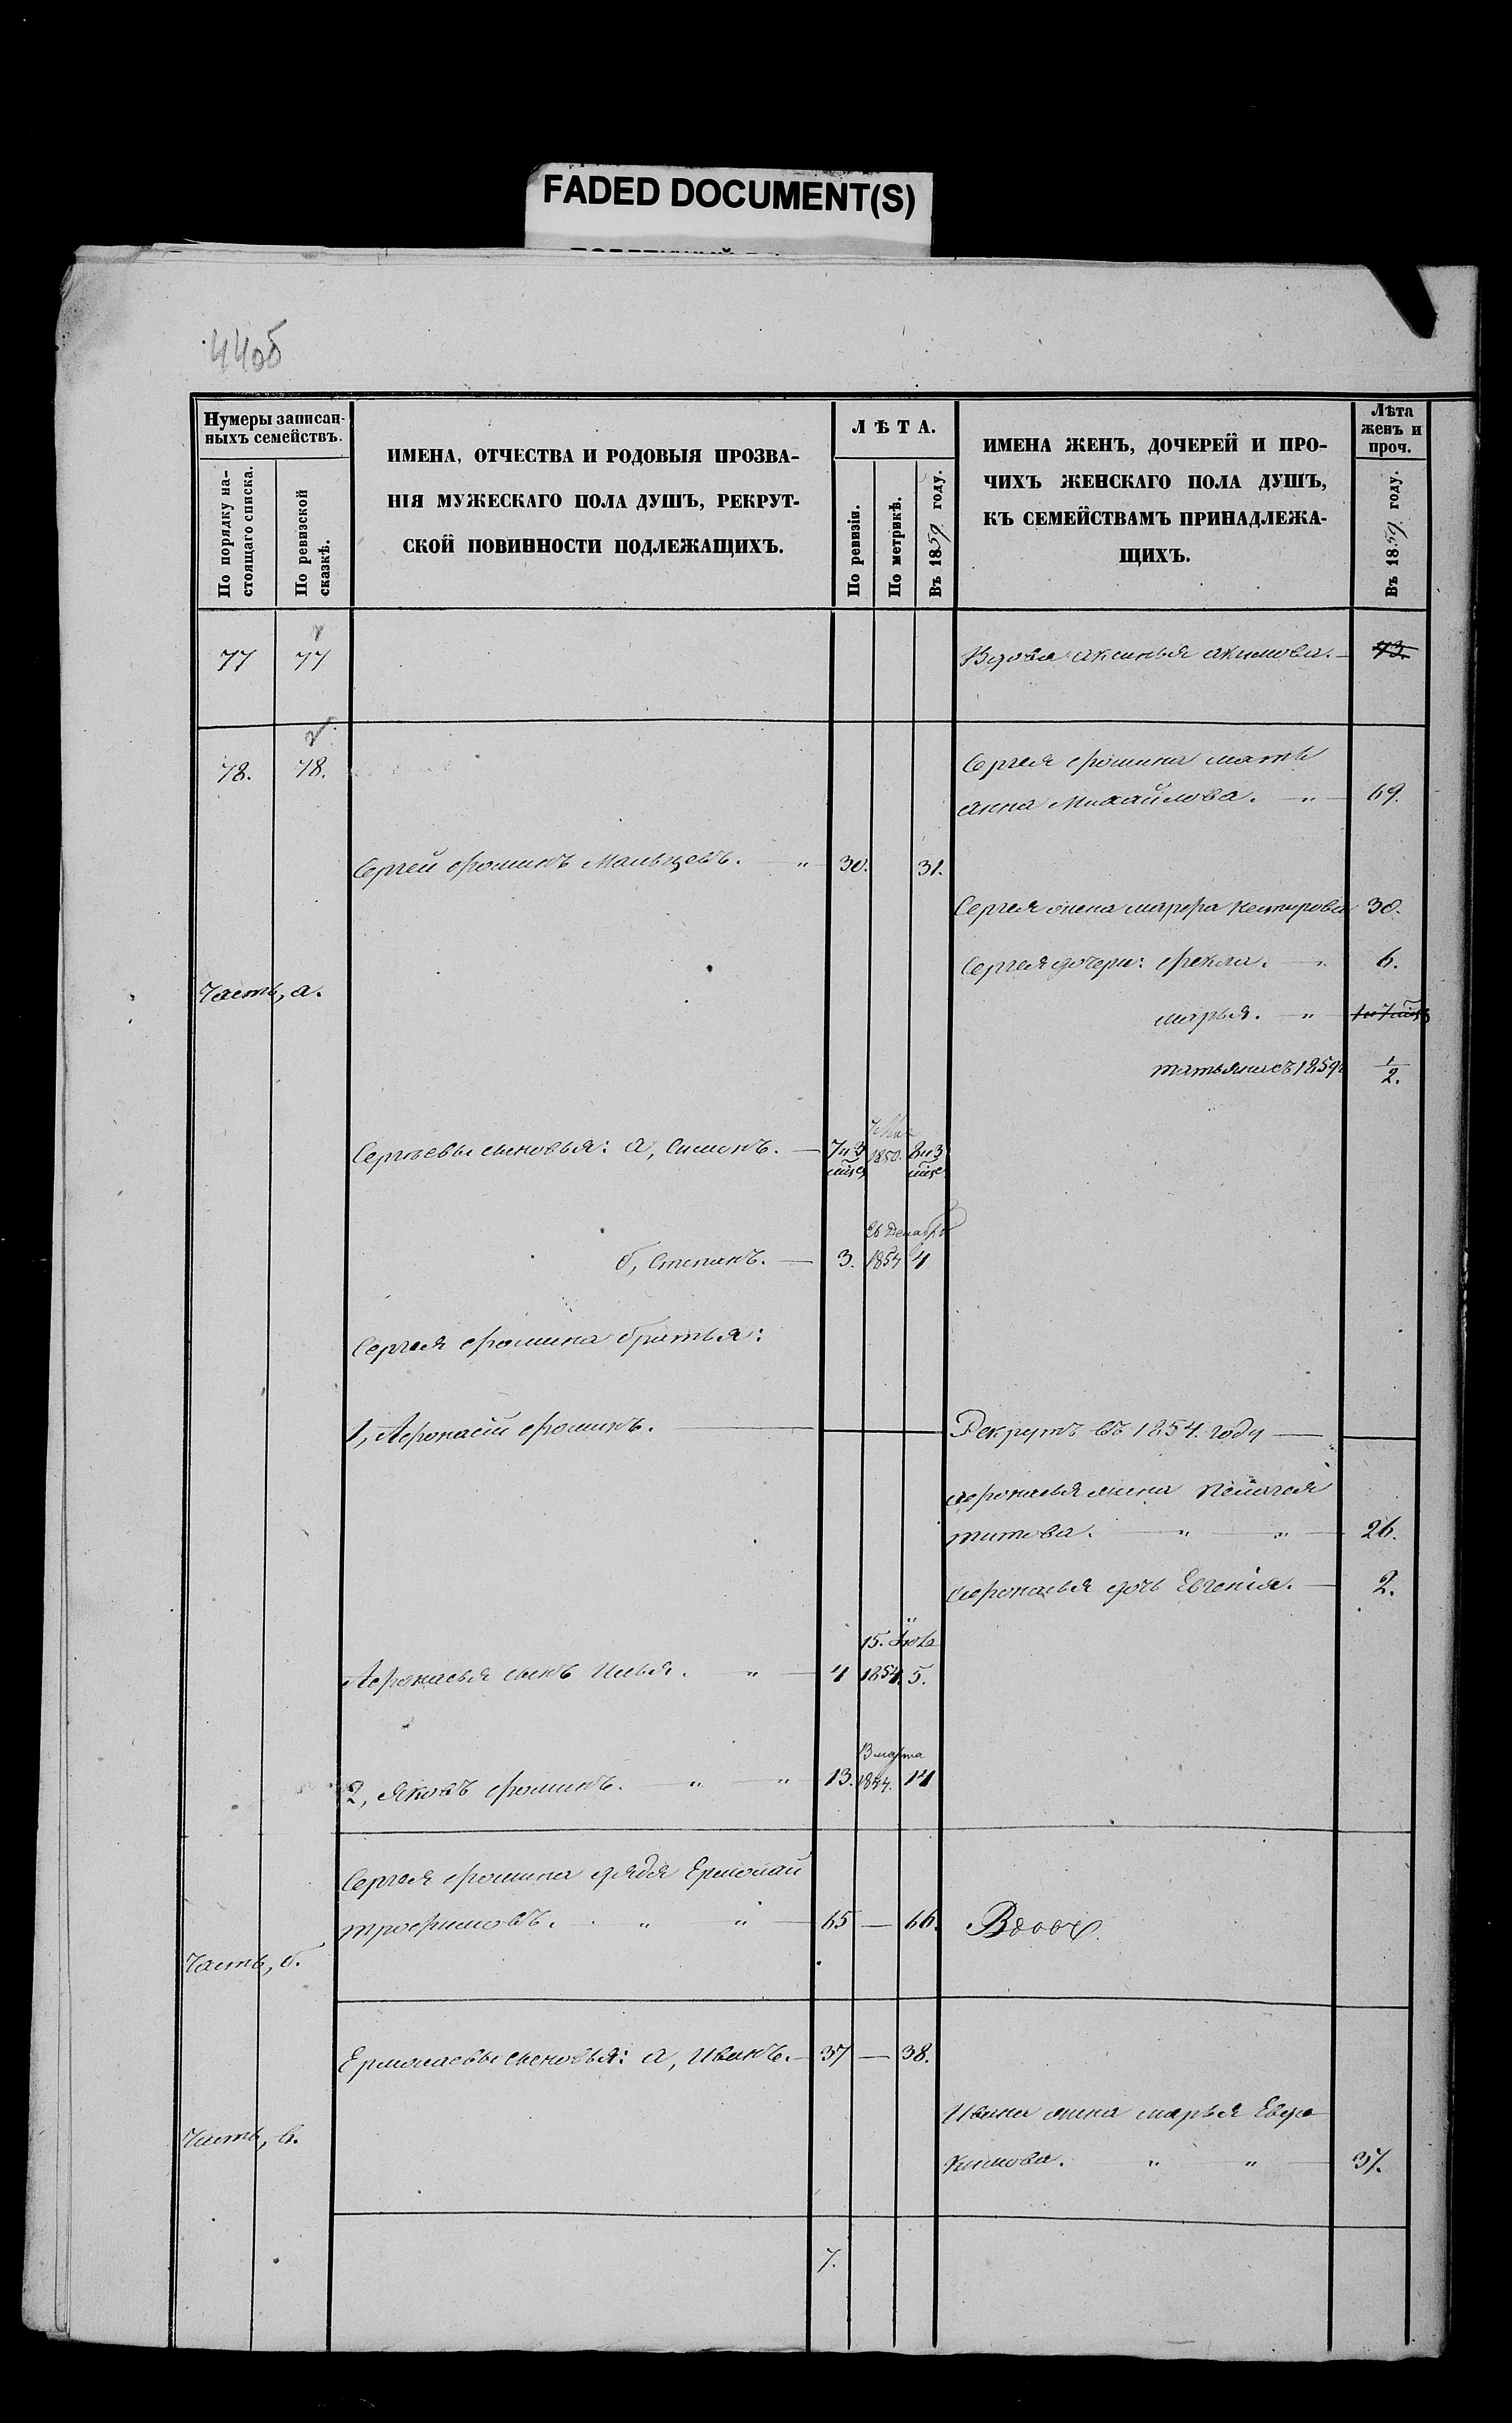 FADED DOCUMENT(S)
44об
Нумеры записан-
ныхъ семействъ.
По порядку на-
стоящаго списка.
По ревизской
сказкѣ.
ИМЕНА, ОТЧЕСТВА И РОДОВЫЯ ПРОЗВА-
НІЯ МУЖЕСКАГО ПОЛА ДУШЪ, РЕКРУТ-
СКОЙ ПОВИННОСТИ ПОДЛЕЖАЩИХЪ.
ЛѢТА.
По ревизіи.
По метрикѣ.
Въ 1859 году.
ИМЕНА ЖЕНЪ, ДОЧЕРЕЙ И ПРО-
ЧИХЪ ЖЕНСКАГО ПОЛА ДУШЪ,
КЪ СЕМЕЙСТВАМЪ ПРИНАДЛЕЖА-
ЩИХЪ.
Лѣта
женъ и
проч.
Въ 1859 году.
77 77 Вдова Аксинья Акимова. 73.
78. 78.
Сергея Фомина мать
Анна Михайлова. 69.
Сергей Фоминъ Мальцевъ. 30. 31.
Сергея жена Марфа Нестерова 30.
Сергея дочери: Фекла. 6.
Часть, а.
Марья. 1 и 7 мѣс
Татьяна съ 1859 1/2.
Сергѣевы сыновья: а, Симонъ. 7 и 3 мѣс 1850. 8 и 3 мѣс
26 Декабр
б, Степанъ. 3. 1854 4
Сергея Фомина братья:
1, Афонасій Фоминъ. Рекрутъ въ 1854. году
Афонасья жена Пелагея
Титова. 26.
Афонасья дочь Евгенія. 2.
15. Іюля
Афонасья сынъ Илья. 4 1854. 5.
Марта
2, Яковъ Фоминъ. 13. 1844. 14
Сергея Фомина дядя Ермолай
Трофимовъ. 65 — 66. Вдовъ.
Часть, б.
Ермолаевы сыновья: а, Иванъ. 37 — 38.
Ивана жена Марья Евдо
Часть, в.
кимова. 37.
7.